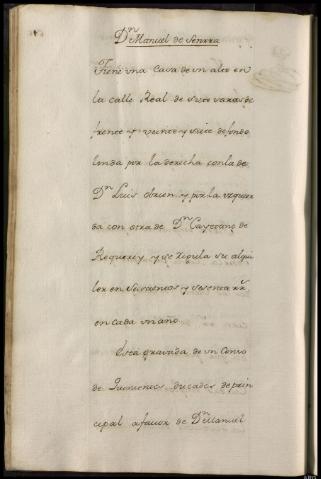 Dn Manuel de Senrra
Tiene una Casa de un alto en
la calle Real de siete varas de
frente y veinte y siete de fondo
linda por la derecha con la de
Dn Luis obrien y por la izquier
da con otra de Dn Cayetano de
Requerey y se regula su alqui
ler en seiscientos y sesenta rr
en cada un año
Esta gravada de un Censo
de Quinientos ducados de prin
cipal a favor de Dn Manuel